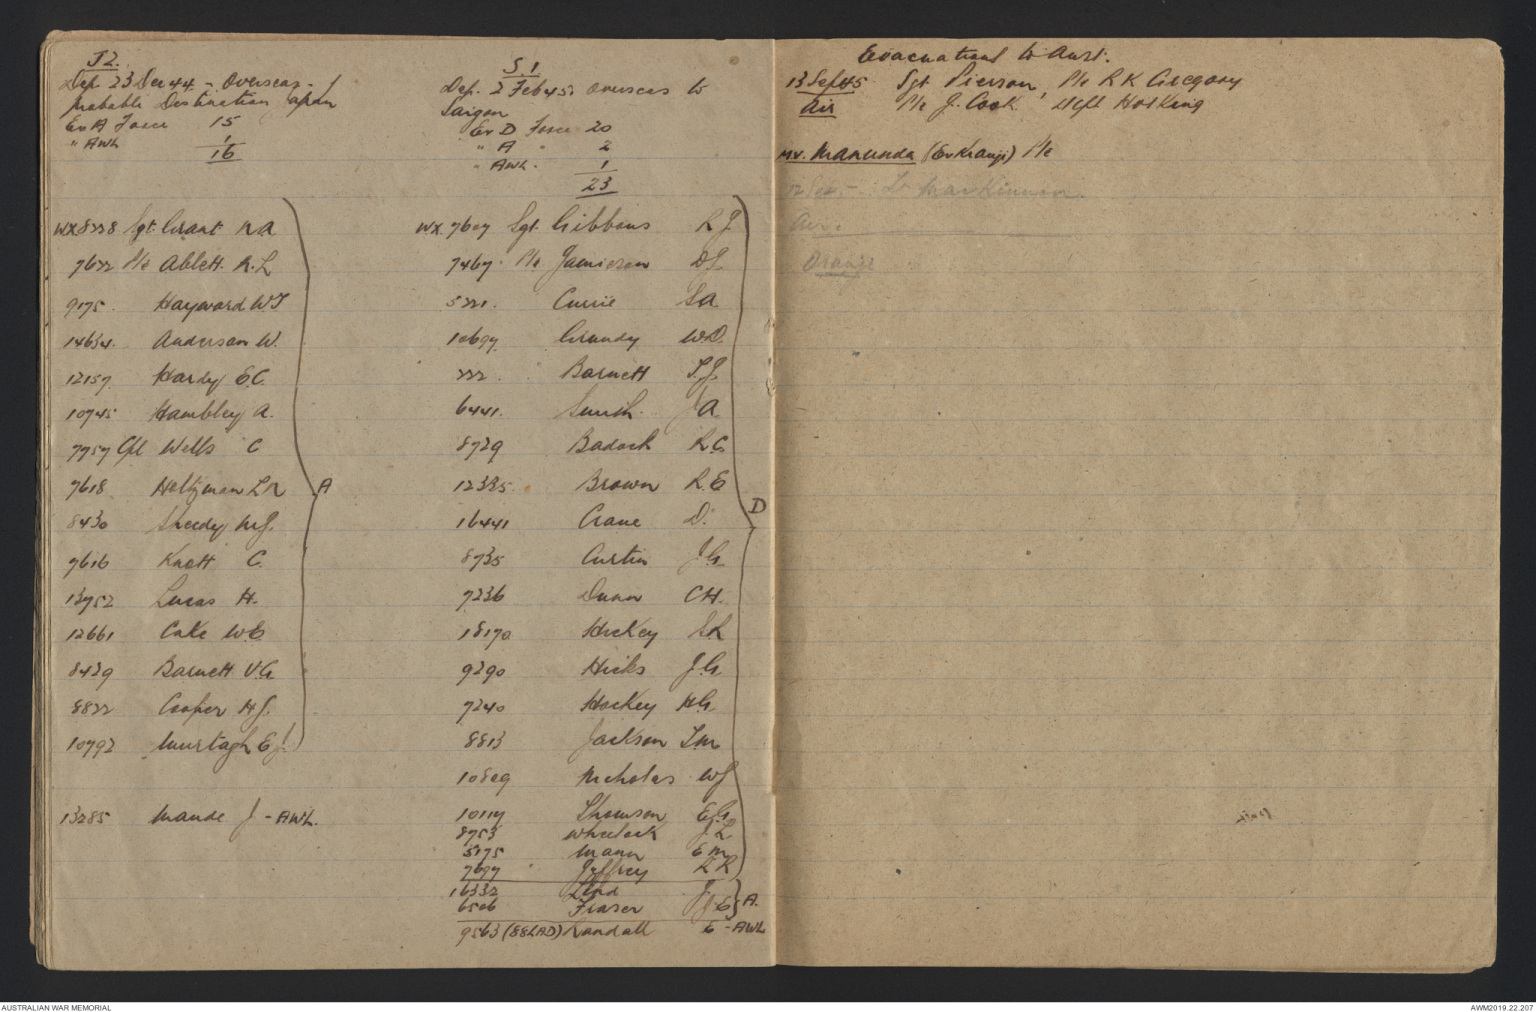 J2.
Dep. 23 Dec 44 - Overseas -
probable Destination Japan
Ex A Force 15
" AWL 1
16
WX8228 Sgt Grant R A
7622 Pte Ablett. R. L
9175. Hayward W T
14634. Anderson W.
12157. Hardy E. C.
10745 Hambley A.
7757 Cpl Wells C
7618 Holtzman L R
A
8430 Sheedy M J.
7616 Knott C.
13752 Lucas H.
12661 Cake W E
8429 Barnett V. G.
8822 Cooper H J.
10792 Murtagh E J.
13285 Maude J - AWL.
S1
Dep. 2 Feb 45. overseas to
Saigon
Ex D Force 20
" A " 2
" AWL. 1
23
WX. 7607 Sgt. Gibbons R J
7467. Pte Jamieson D J.
5221. Currie S A.
10697 Grundy W. D.
222. Barnett T. J.
6441. Smith. J A.
8729 Badock R. C.
12385. Brown R. E
D
16441 Crane D.
8735 Curtin J. G.
7236 Dunn C H.
18170 Hickey S R
9290 Hicks J. G.
7240 Hockey H. G.
8813 Jackson L M
10809 Nicholas W J
10117 Thomson E. G.
8753 Wheelock J. L
5175 Mann E M
7697 Jeffrey R R
16332 Lind J.
6506 Fraser J. E A.
9563 (88LAD) Randall E - AWL
Evacuations to Aust.
13 Sept 45 Sgt Pierson, Pte R K Gregory
Air Pte J. Cook S/Sgt Hosking
MV. Manunda (Ex Kranji) Pte
12 Sep. - Lt MacKinnon.
Air.
Oranje